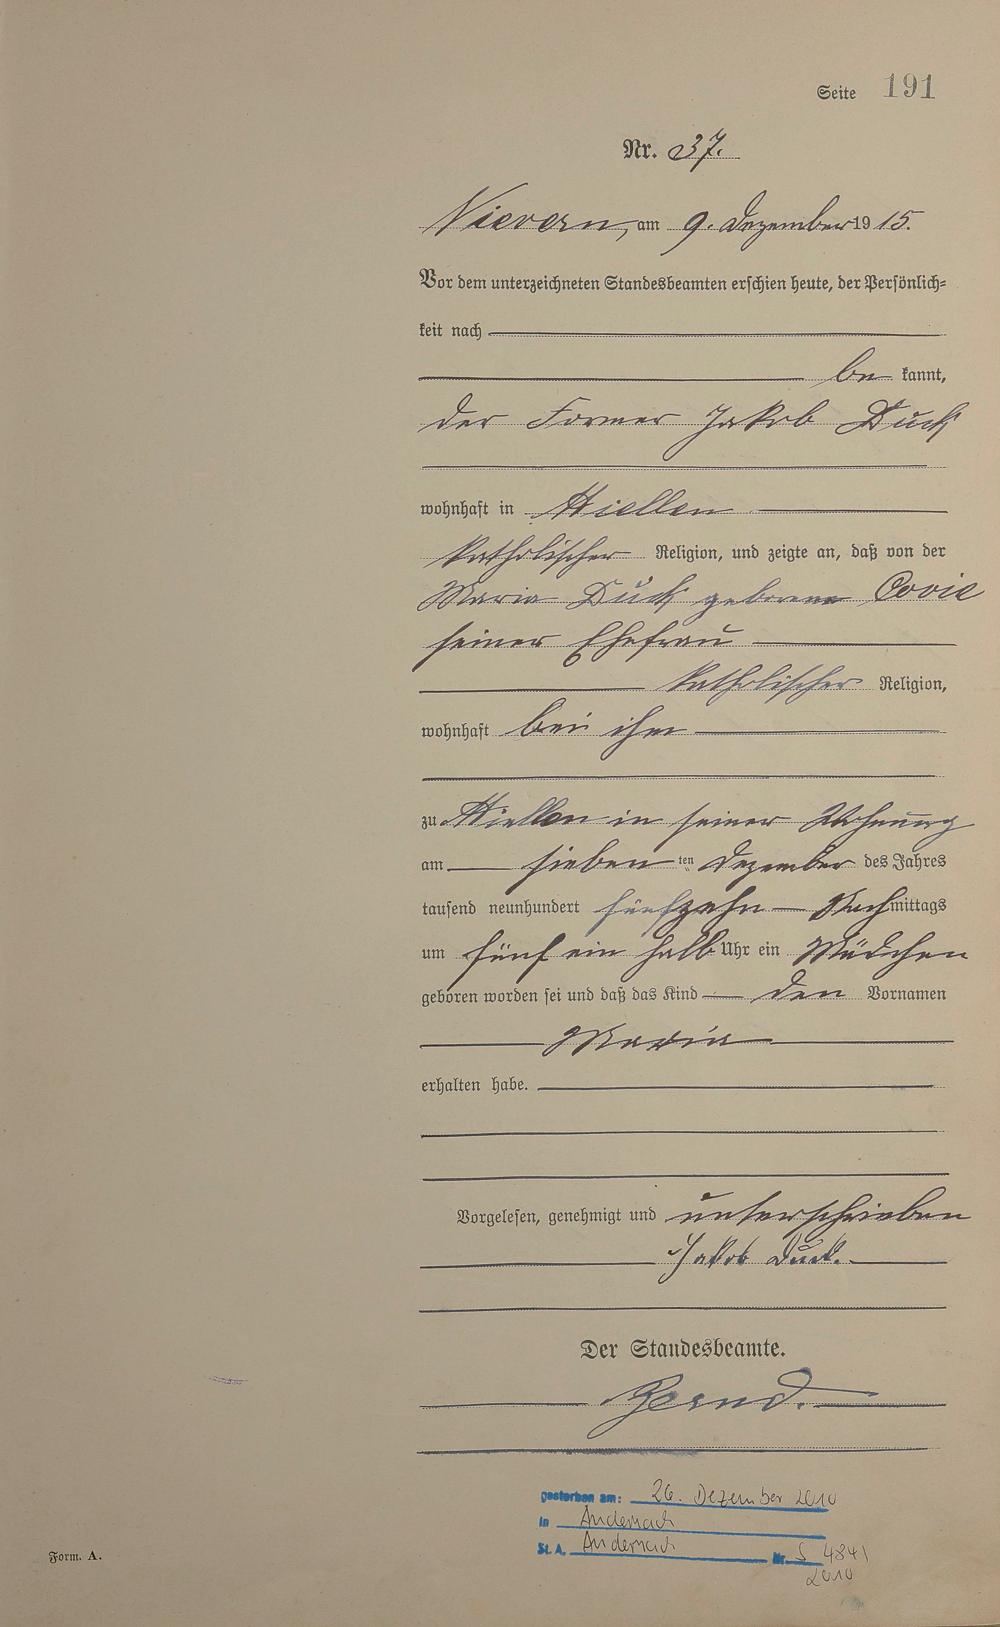 Seite 191
Nr. 37.
Nievern, am 9. Dezember 1915.
Vor dem unterzeichneten Standesbeamten erschien heute, der Persönlich=
keit nach
be kannt,
der Former Jakob Duck
wohnhaft in Miellen
katholischer Religion, und zeigte an, daß von der
Maria Duck geborene
seiner Ehefrau
katholischer Religion,
wohnhaft bei ihm
zu Miellen in seiner Wohnung
am sieben ten Dezember des Jahres
tausend neunhundert fünfzehn Nachmittags
um fünf ein halb Uhr ein Mädchen
geboren worden sei und daß das Kind den Vornamen
Maria
erhalten habe.
Vorgelesen, genehmigt und unterschrieben
Jakob Duck.
Der Standesbeamte.
gestorben am: 26. Dezember 2010
in Andernach
St. A. Andernach Nr. S 484/
2010
Form. A.